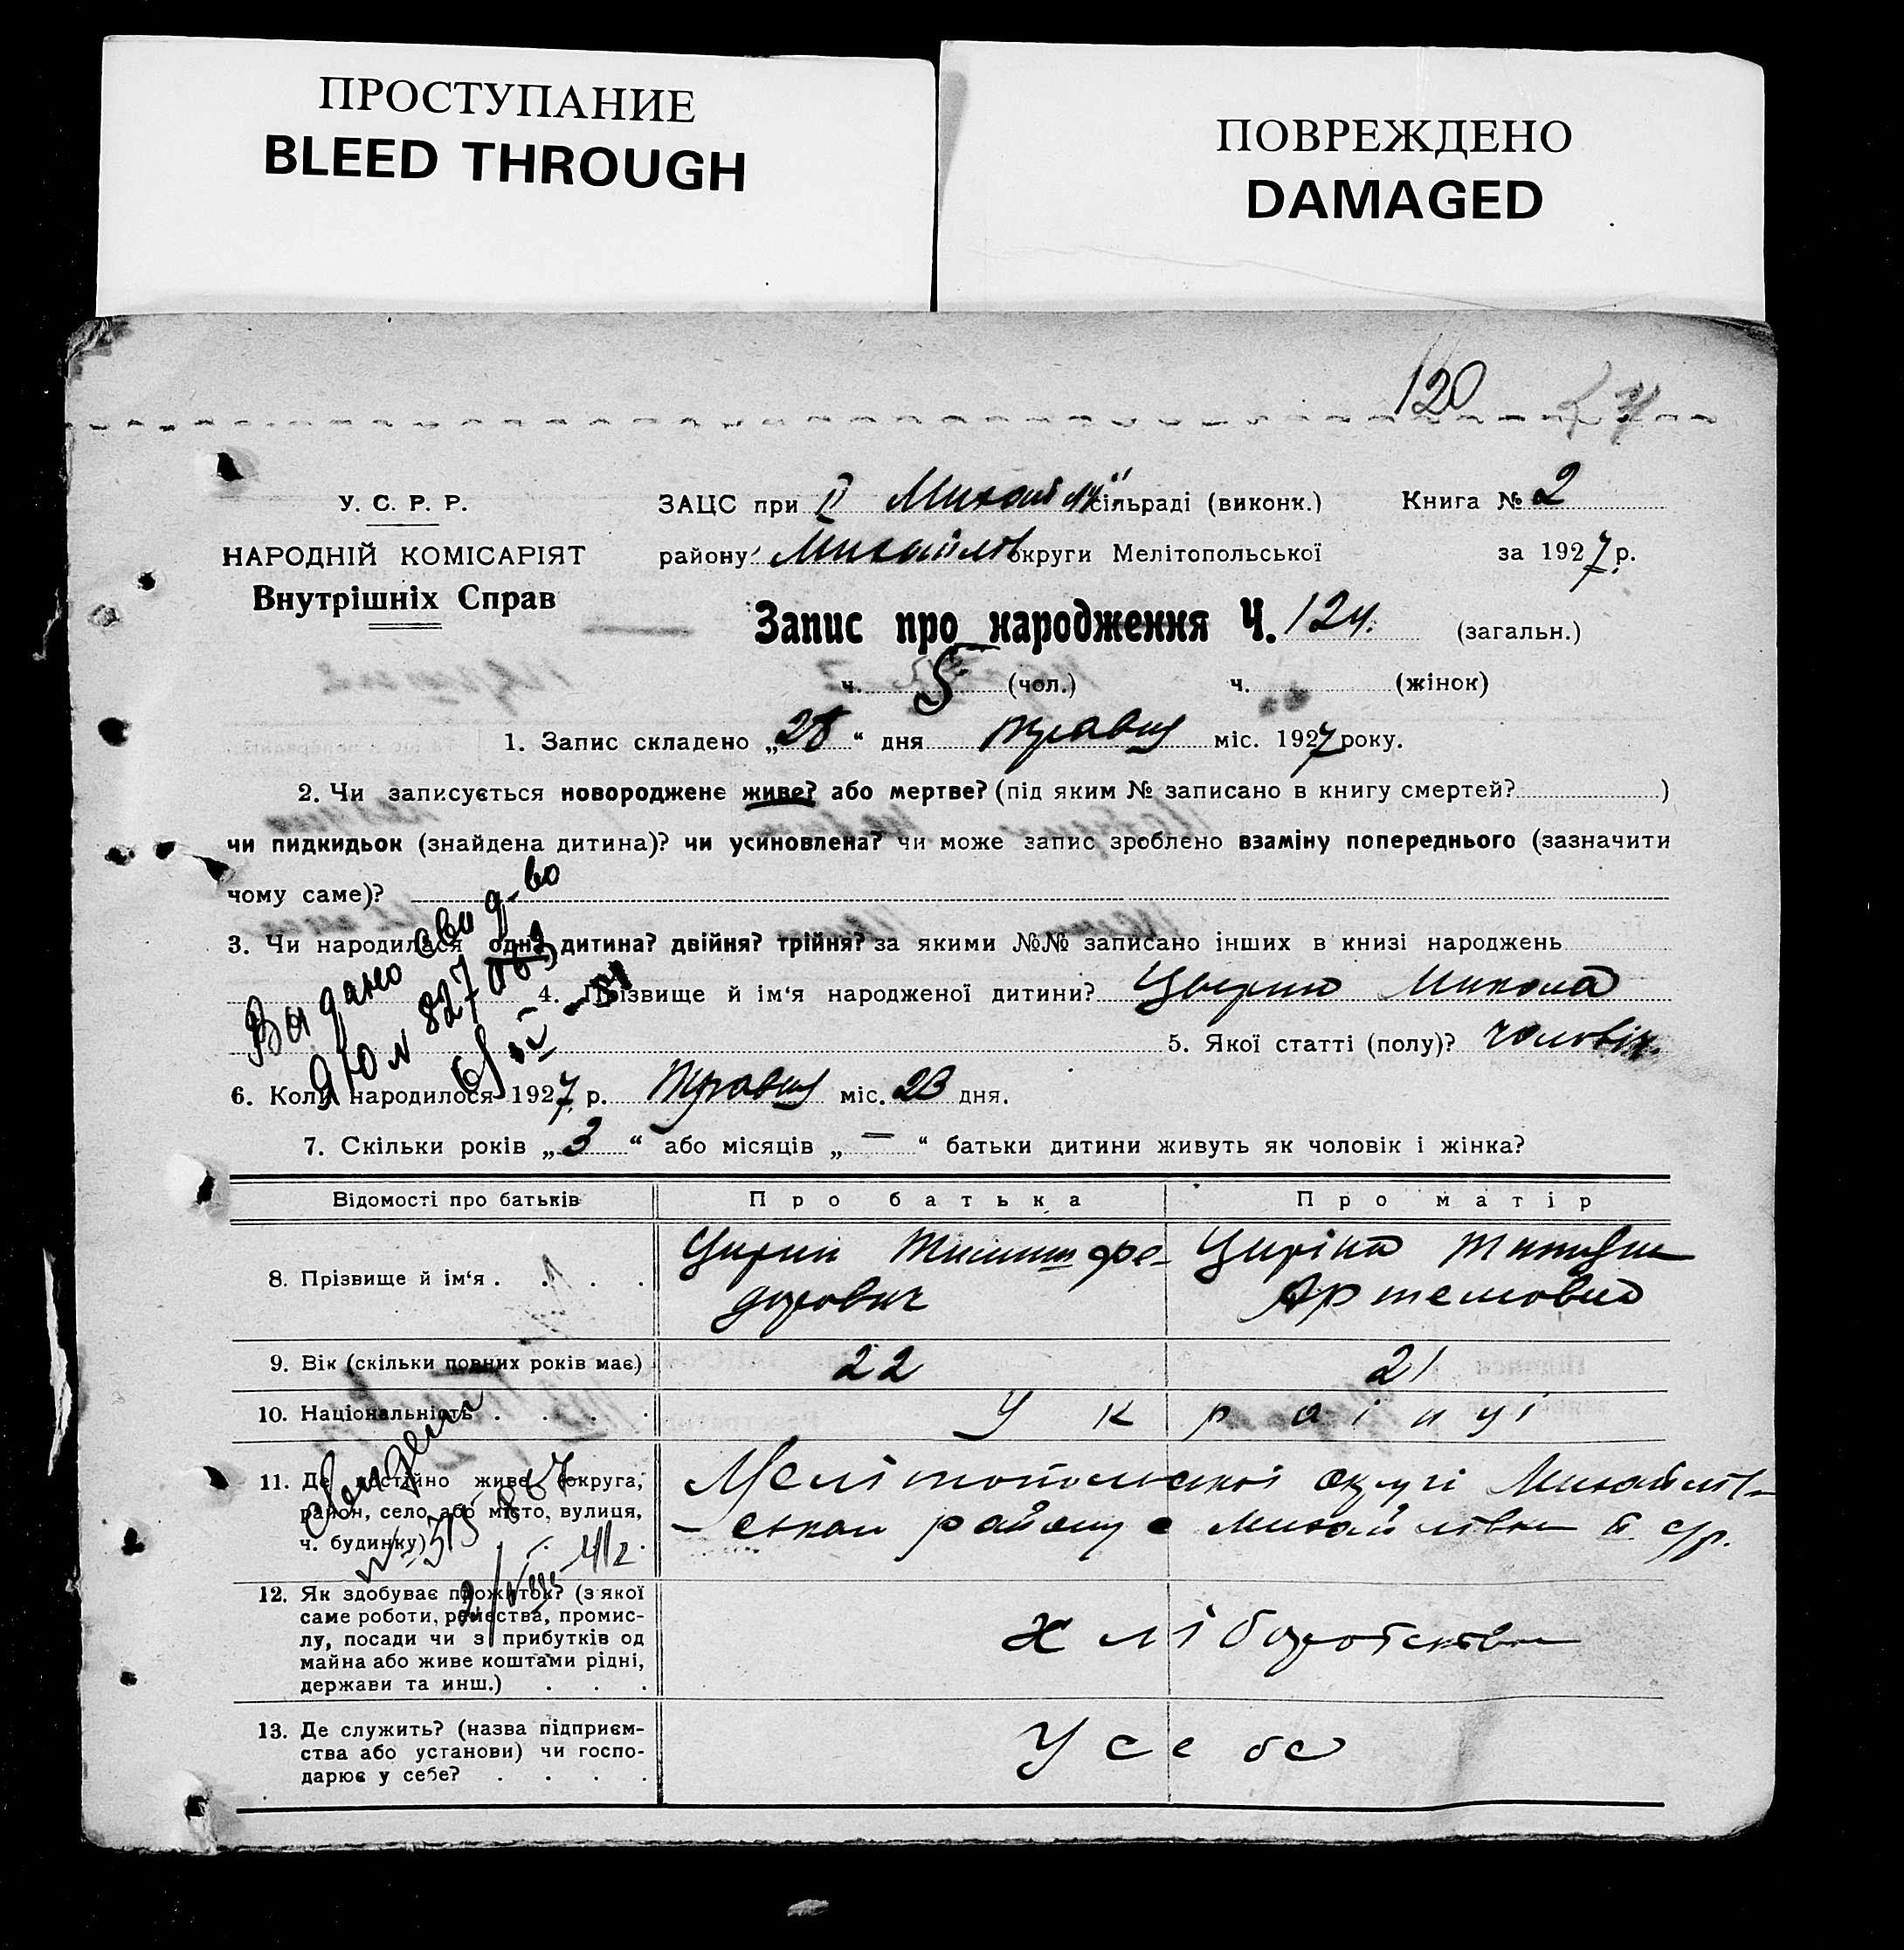 ПРОСТУПАНИЕ
BLEED THROUGH
ПОВРЕЖДЕНО
DAMAGED
120
У. С. Р. Р.
НАРОДНІЙ КОМІСАРІЯТ
Внутрішніх Справ
ЗАЦС при ІІ сільраді (виконк.) Книга № 2
району округи Мелітопольської за 1927 р.
Запис про народження Ч. 124. (загальн.)
ч. (чол.) ч. (жінок)
1. Запис складено „28“ дня травня міс. 1927 року.
2. Чи записується новороджене живе? або мертве? (під яким № записано в книгу смертей? )
чи пидкидьок (знайдена дитина)? чи усиновлена? чи може запис зроблено взаміну попереднього (зазначити
чому саме)?
3. Чи народилася одна дитина? двійня? трійня? за якими №№ записано інших в книзі народжень
4. Прізвище й ім‘я народженої дитини? Микола
5. Якої статті (полу)? чоловіч.
6. Коли народилося 1927 р. травня міс. 23 дня.
7. Скільки років „3“ або місяців „—“ батьки дитини живуть як чоловік і жінка?
Видано свид-во
Відомості про батьків Про батька Про матір
8. Прізвище й ім‘я . . . .
Федорович
Артемовна
9. Вік (скільки повних років має) 22 21
10. Національність . . . . Українці
11. Де постійно живе (округа,
район, село або місто, вулиця,
ч. будинку)
Мелітопольської округі
району с Михайлівка ІІ с/р.
12. Як здобуває прожиток? (з якої
саме роботи, ремества, промис-
лу, посади чи з прибутків од
майна або живе коштами рідні,
держави та инш.) . . .
хліборобство
13. Де служить? (назва підприєм-
ства або установи) чи госпо-
дарює у себе? . . . .
У себе